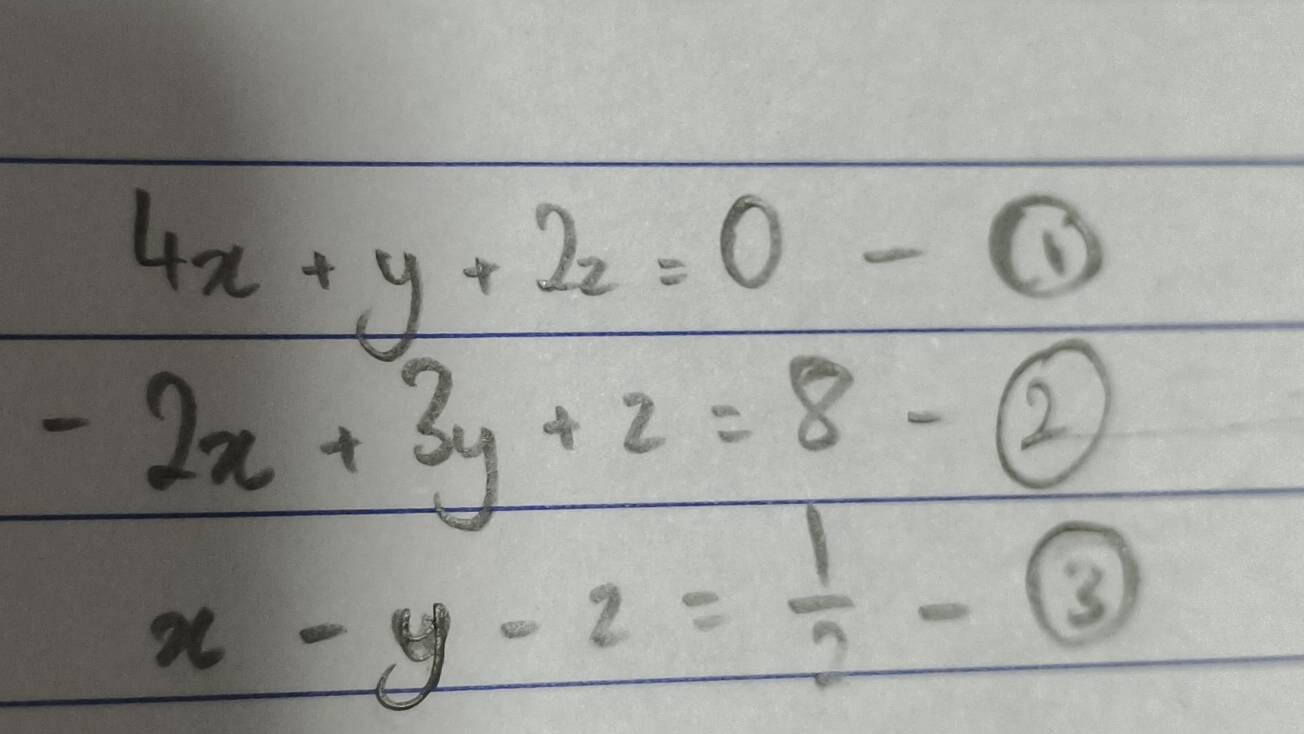 4x + y + 2z = 0 - ①
- 2x + 3y + z = 8 - ②
x - y - z = 1/2 - ③